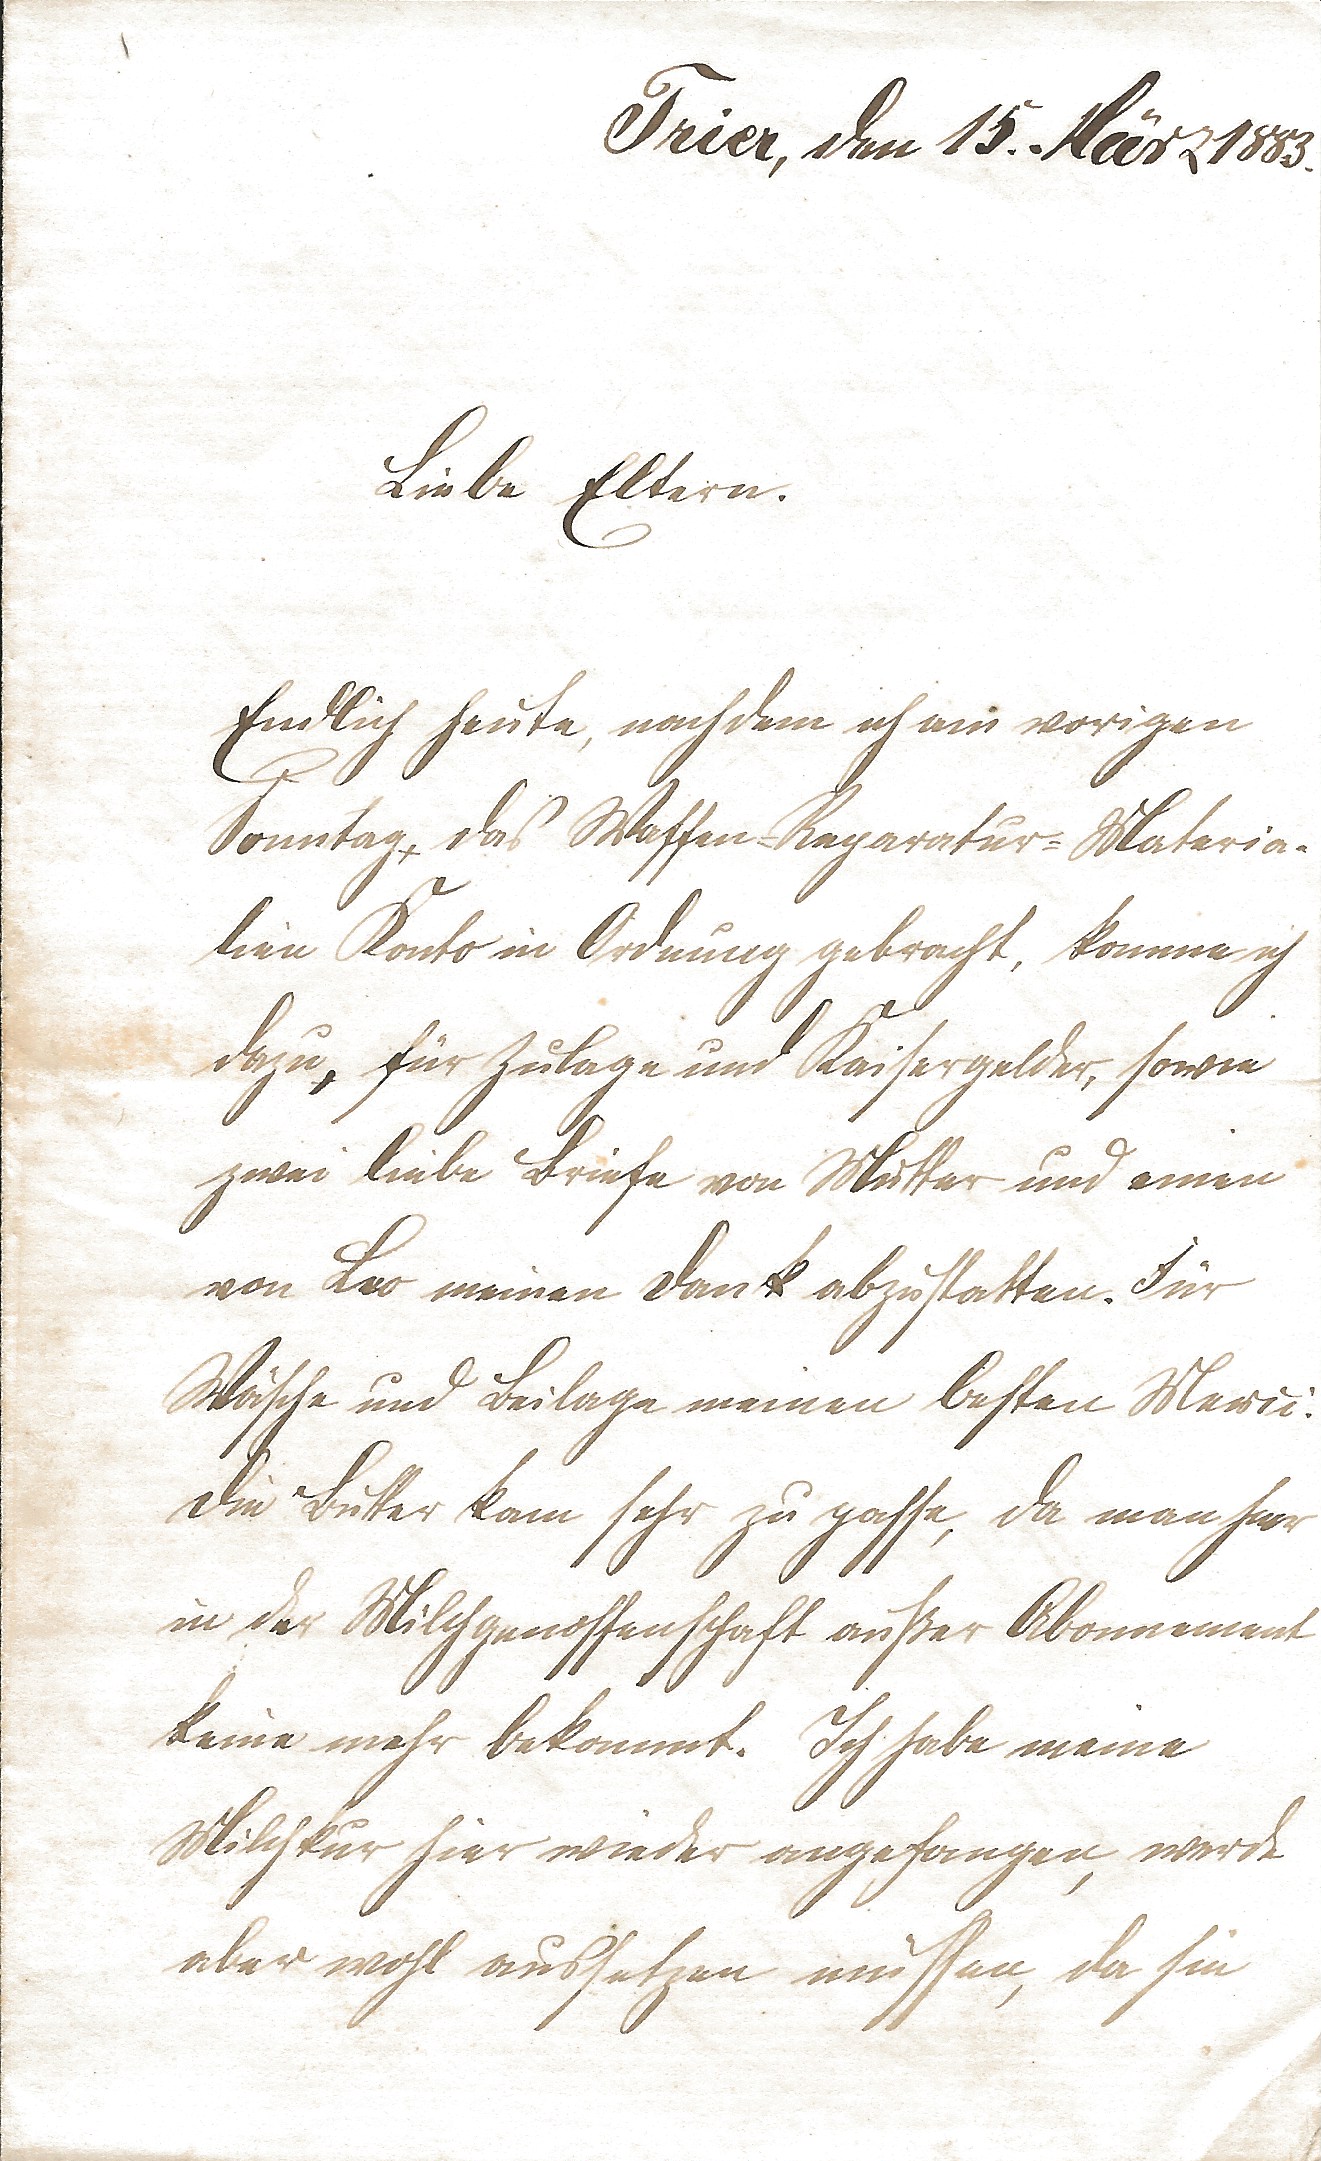 Trier, den 15. März 1883.
Liebe Eltern.
Endlich heute, nachdem ich am vorigen
Sonntag, das Waffen-Reparatur-Materia-
lien Konto in Ordnung gebracht, komme ich
dazu, für Zulage und Kaisergelder, sowie
zwei liebe Briefe von Mutter und einen
von Leo meinen Dank abzustatten. Für
Wäsche und Beilage meinen besten Merci.
Die Butter kam sehr zu passe, da man hier
in der Milchgenossenschaft außer Abonnement
keine mehr bekommt. Ich habe meine
Milchkur hier wieder angefangen, werde
aber wohl aussetzen müssen, da sie